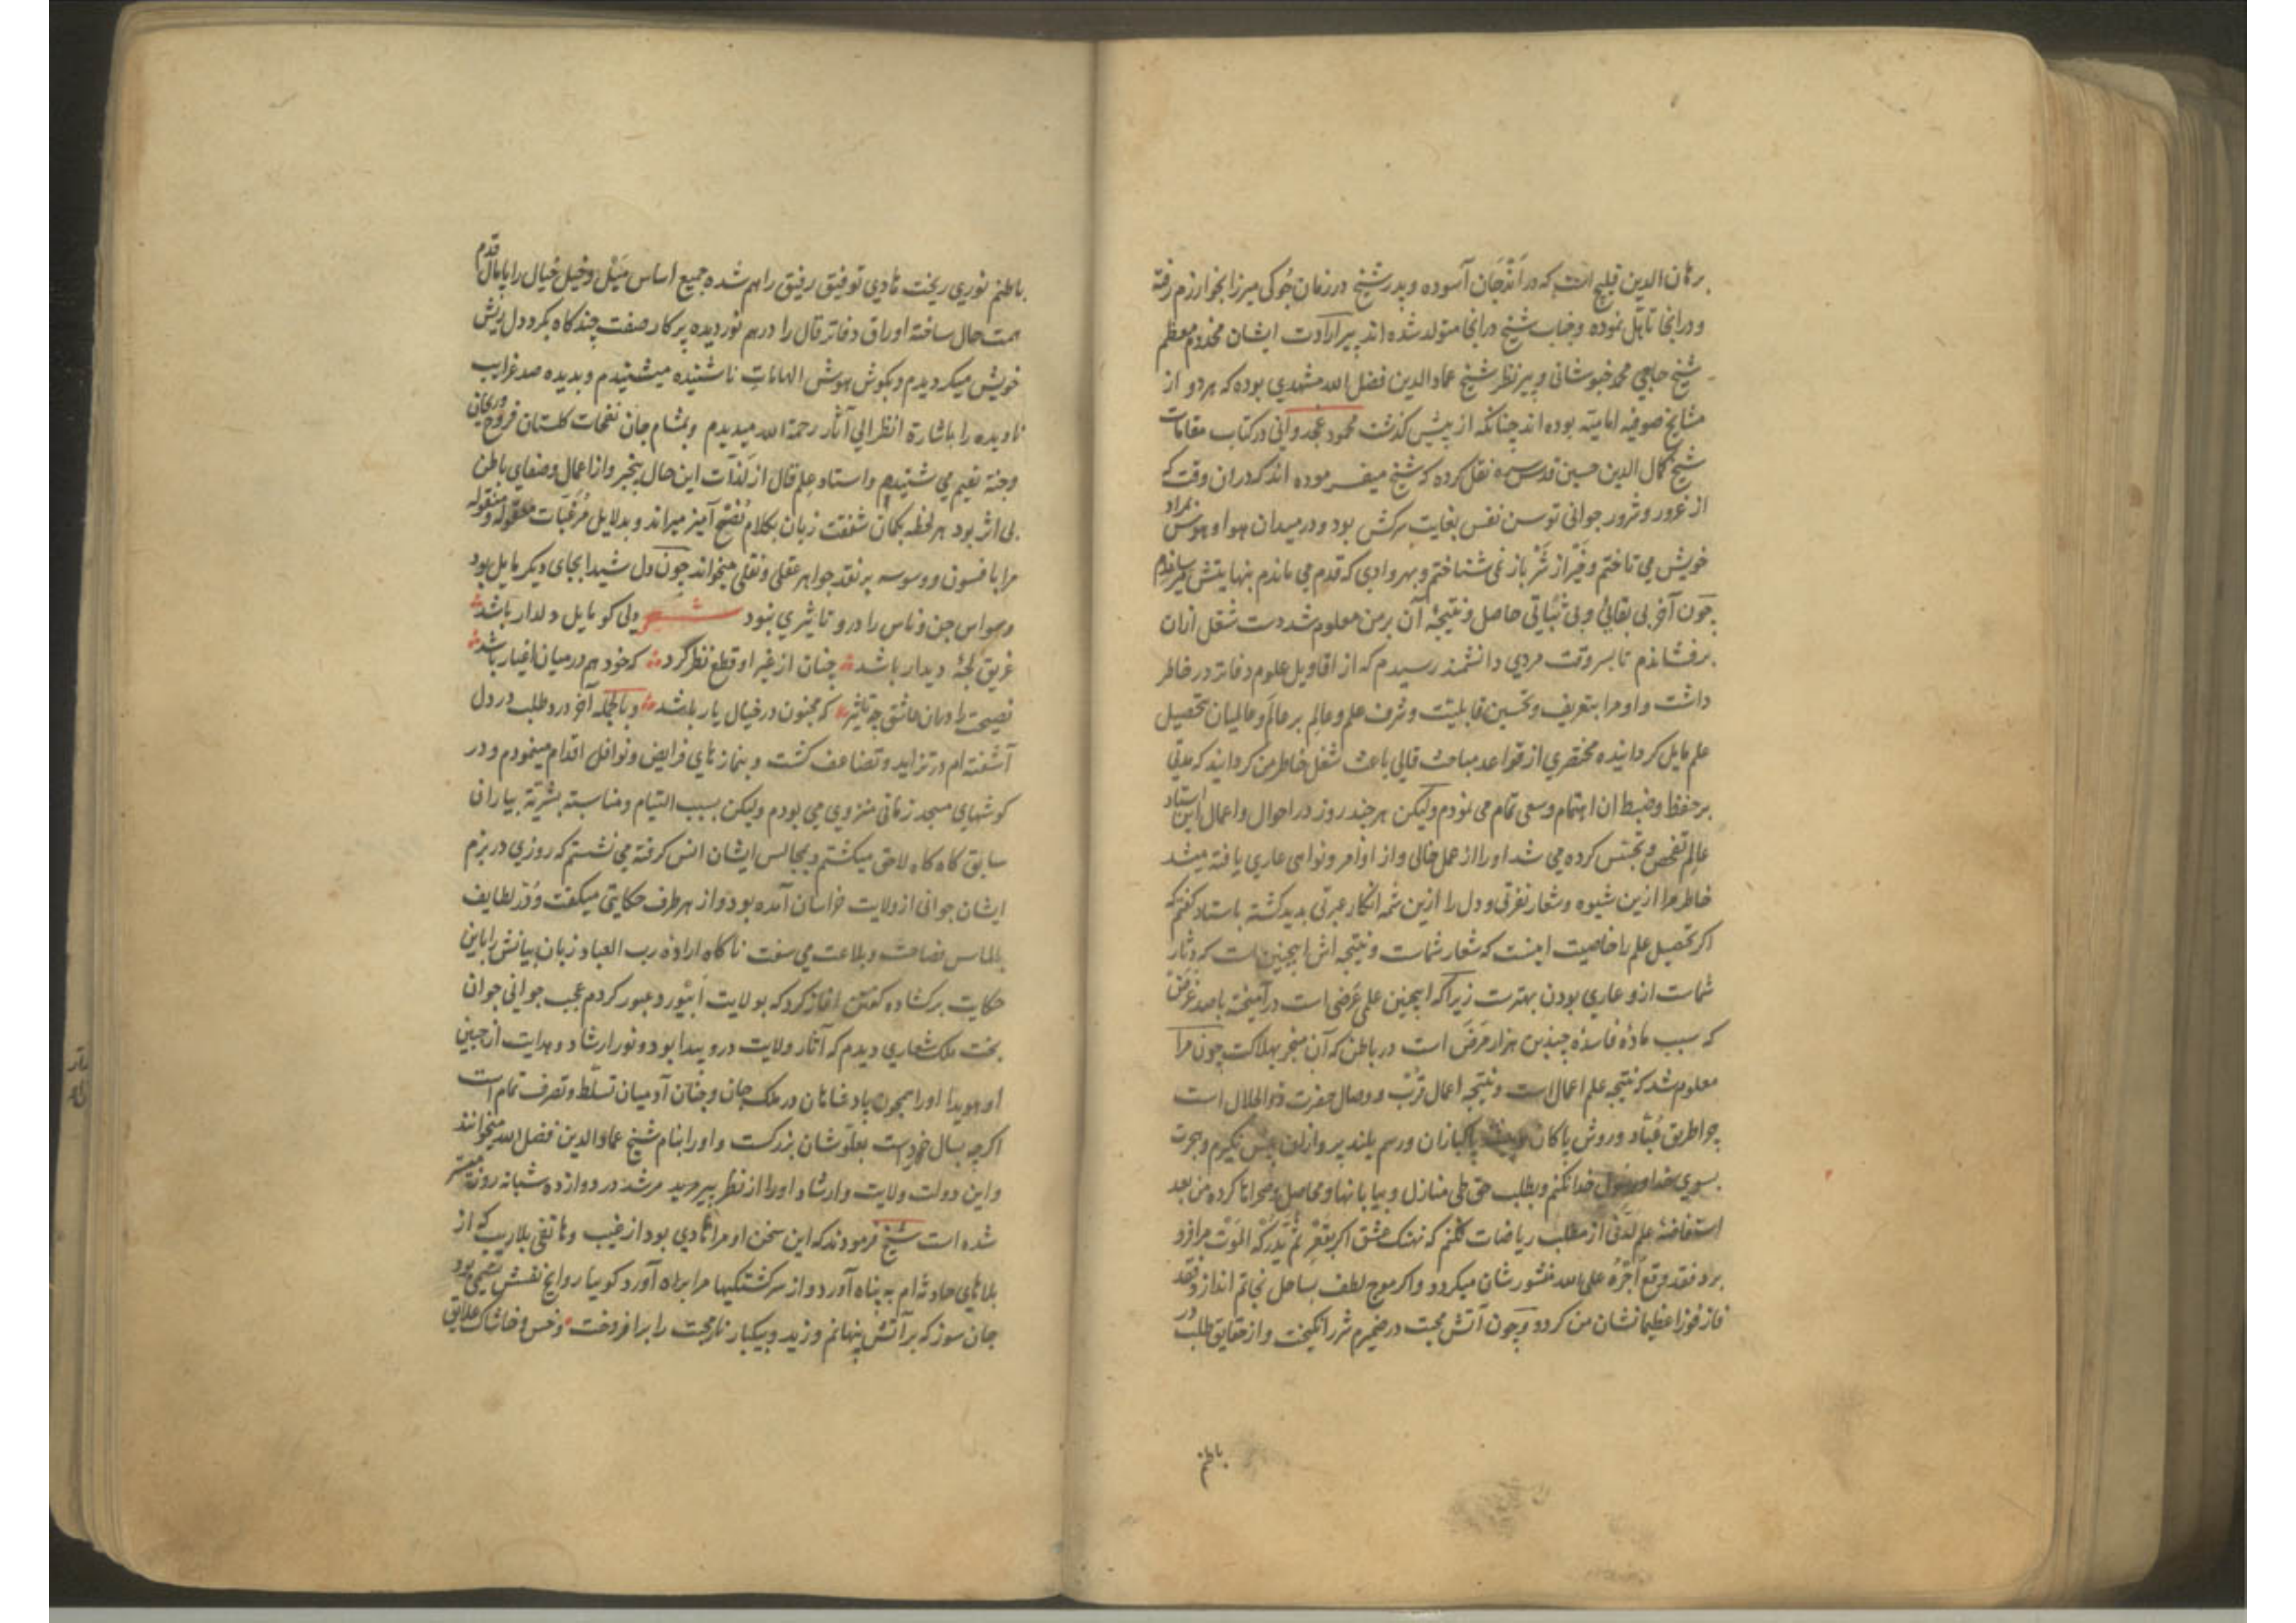 برهان الدین قلیج است که در اَنْدِجَان آسوده و پدر شیخ در زمان جُوکی میرزا بخوارزم رفته
و در انجا تاهّل نموده و جناب شیخ در انجا متولد شده اند پیر ارادت ایشان مخدوم معظم
شیخ حاجی محمد خبوشانی و پیر نظر شیخ عماد الدین فضل الله مشهدی بوده که هر دو از
مشایخ صوفیه امامیّه بوده اند چنانکه از پیش کذشت محمود غجدوانی در کتاب مقامات
شیخ کمال الدین حسین قدس سره نقل کرده که شیخ میفرموده اند که در ان وقت که
از غرور و شرور جوانی توسن نفس بغایت سرکش بود و در میدان هوا و هوس بمراد
خویش می تاختم و خَیْر از شَرْ باز نمی شناختم و بهر وادی که قدم می ماندم بنهایتش میرسانیدم
چون آخر بی بقایی و بی ثباتی حاصل و نتیجهٔ آن بر من معلوم شد دست شغل ازان
برفشاندم تا بسر وقت مردی دانشمند رسیدم که از اقاویل علوم دفاتر در خاطر
داشت و او مرا بتعریف و تحسین قابلیّت و شرف علم و عالِم بر عالَم و عالمیان بتحصیل
علم مایل کردانیده مختصری از قواعد مباحث قالی باعث شغل خاطر من کردانید که مدتی
بر حفظ و ضبط ان اهتمام و سعی تمام می نمودم ولیکن هر چند روز در احوال و اعمال این استاد
عالِم تفحص و تجسّس کرده می شد او را از عمل خالی و از اوامر و نواهی عاری یافته میشد
خاطر مرا ازین شیوه و شعار نفرتی و دل را ازین شمه انکار عبرتی پدید کشته باستاد کفتم که
اکر تحصیل علم را خاصیت اینست که شعار شماست و نتیجه اش اینچنین است که دثار
شماست ازو عاری بودن بهترست زیرا که اینچنین علمی عَرَضی است در آمیخته با صد غَرَضْ
که سبب مادّهٔ فاسدهٔ چندین هزار مَرَضَ است در باطن که آن منجر بهلاکت چون مرا
معلوم شد که نتیجه علم اعمال است و نتیجه اعمال قُرْبْ و وصال حضرت ذو الجلال است
چرا طریق عُبّاد و روش پاکان پاکبازان و رسم بلند پروازان پیش نکیرم و هجرت
بسوی خدا و رسول خدا نکنم و بطلب حق طی منازل و بیابانها و صحراها کرده من بعد
استفاضهٔ علم لَدُنّی از مطلب ریاضات نکنم که نهنک عشق اکر بقعْرِ ثمّ یُدْرِکْهُ المَوْت مرا فرو
برد فقد وقع اَجْرُهُ علی الله منشور شان میکردد و اکر موج لطف بساحل نجاتم اندازد فقد
فاز فوزا عظیما نشان من کردد و چون آتش محبت در ضمیرم شرر انکیخت و از حقایق طلب در
باطنم
باطنم نوری ریخت هادی توفیق رفیق راهم شده جمیع اساس مَیْل و خیل خیال را پایمال قدم
همت حال ساخته اوراق دفاتر قال را درهم نوردیده پرکار صفت چند کاه بکرد دل ریش
خویش میکردیدم و بکوش هوش الهامات ناشنیده میشنیدم و بدیده صد غرایب
نادیده را باشارة انظر الی آثار رحمة الله میدیدم و بمشام جان نفحات کلستان فروح و ریحان
وجنة نعیم می شنیدم و استاد علم قال از لَذّات این حال بیخبر و از اعمال و صفای باطن
بی اثر بود هر لحظه بکمان شفقت زبان بکلام نُصْح آمیز میراند و بدلایل مُرغِّبات معقوله و منقوله
مرا بافسون و وسوسه بر نقد جواهر عقلی و نقلی میخواند چون دل شیدا بجای دیکر مایل بود
وسواس جن و ناس را درو تاثیری نبود شعر دلی کو مایل دلدار باشد
غریق لجهٔ دیدار باشد چنان از غیر او قطع نظر کرد که خود هم در میان اغیار باشد
نصیحت را درمان عاشق چه تاثیر که مجنون در خیال یار باشد و بالجمله آخر درد طلب در دل
آشفته ام در تزاید و تضاعف کشت و بنمازهای فرایض و نوافل اقدام مینمودم و در
کوشهای مسجد زمانی منزوی می بودم ولیکن بسبب التیام و مناسبته بشریّة بیاران
سابق کاه کاه لاحق میکشتم و بمجالس ایشان انس کرفته می نشستم که روزی در بزم
ایشان جوانی از ولایت خراسان آمده بود و از هر طرف حکایتی میکفت و دُرّ لطایف
بالماس فصاحت و بلاغت می سفت ناکاه ارادهٔ رب العباد زبان بیانش را باین
حکایت برکشاده کفتن اغاز کرد که بولایت اَبِیْوَرد عبور کردم عجب جوانی جوان
بخت ملک شعاری دیدم که آثار ولایت درو پیدا بود و نور ارشاد و هدایت از جبین
او هویدا او را همچون پادشاهان در ملک جان و جنان آدمیان تسلّط و تصرف تمام است
اکرچه بسال خردست بعلوّ شان بزرکست و او را بنام شیخ عماد الدین فضل الله میخوانند
و این دولت ولایت و ارشاد او را از نظر پیر مرید مرشد در دوازده شبانه روز میسّر
شده است شیخ فرمودند که این سخن او مرا هادی بود از غیب و هاتفی بلاریب که از
بلاهای حادثه ام به پناه آورد و از سرکشتکیها مرا براه آورد کوییا روایح نفسش نسیمی بود
جان سوز که بر آتش پنهانم وزید و بیکبار نار محبت را برافروخت و خس و خاشاک علایق